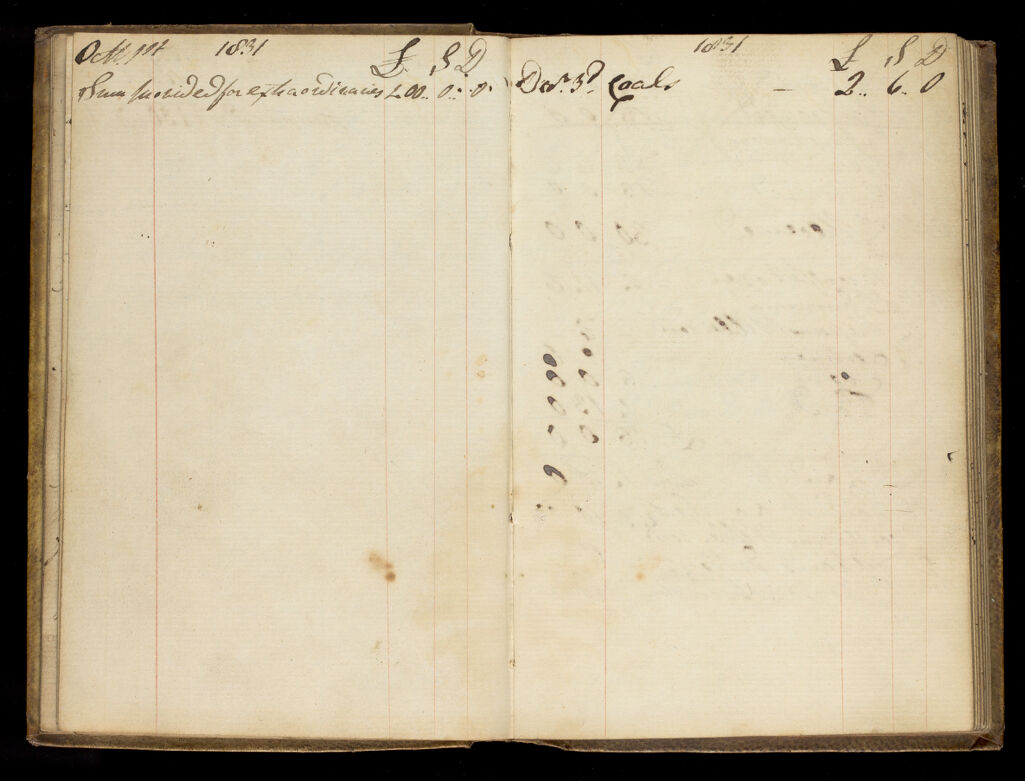 Octbr 1st 1831
£ S D
Sum provided for extraordinaries 200.. 0.. 0.
1831
£ S D
Decr. 3d. Coals — 2.. 6.. 0